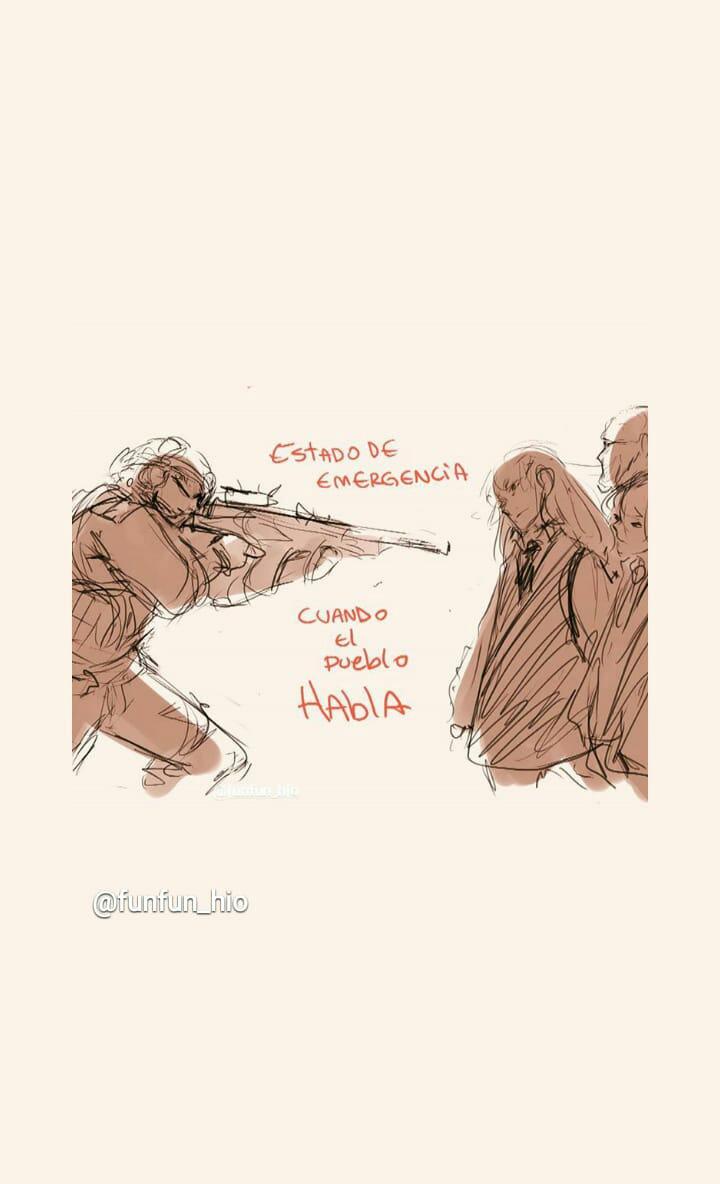 ESTADO DE
EMERGENCIA
CUANDO
El
PUEblO
HAblA
@funfun_hio
@funfun_hio